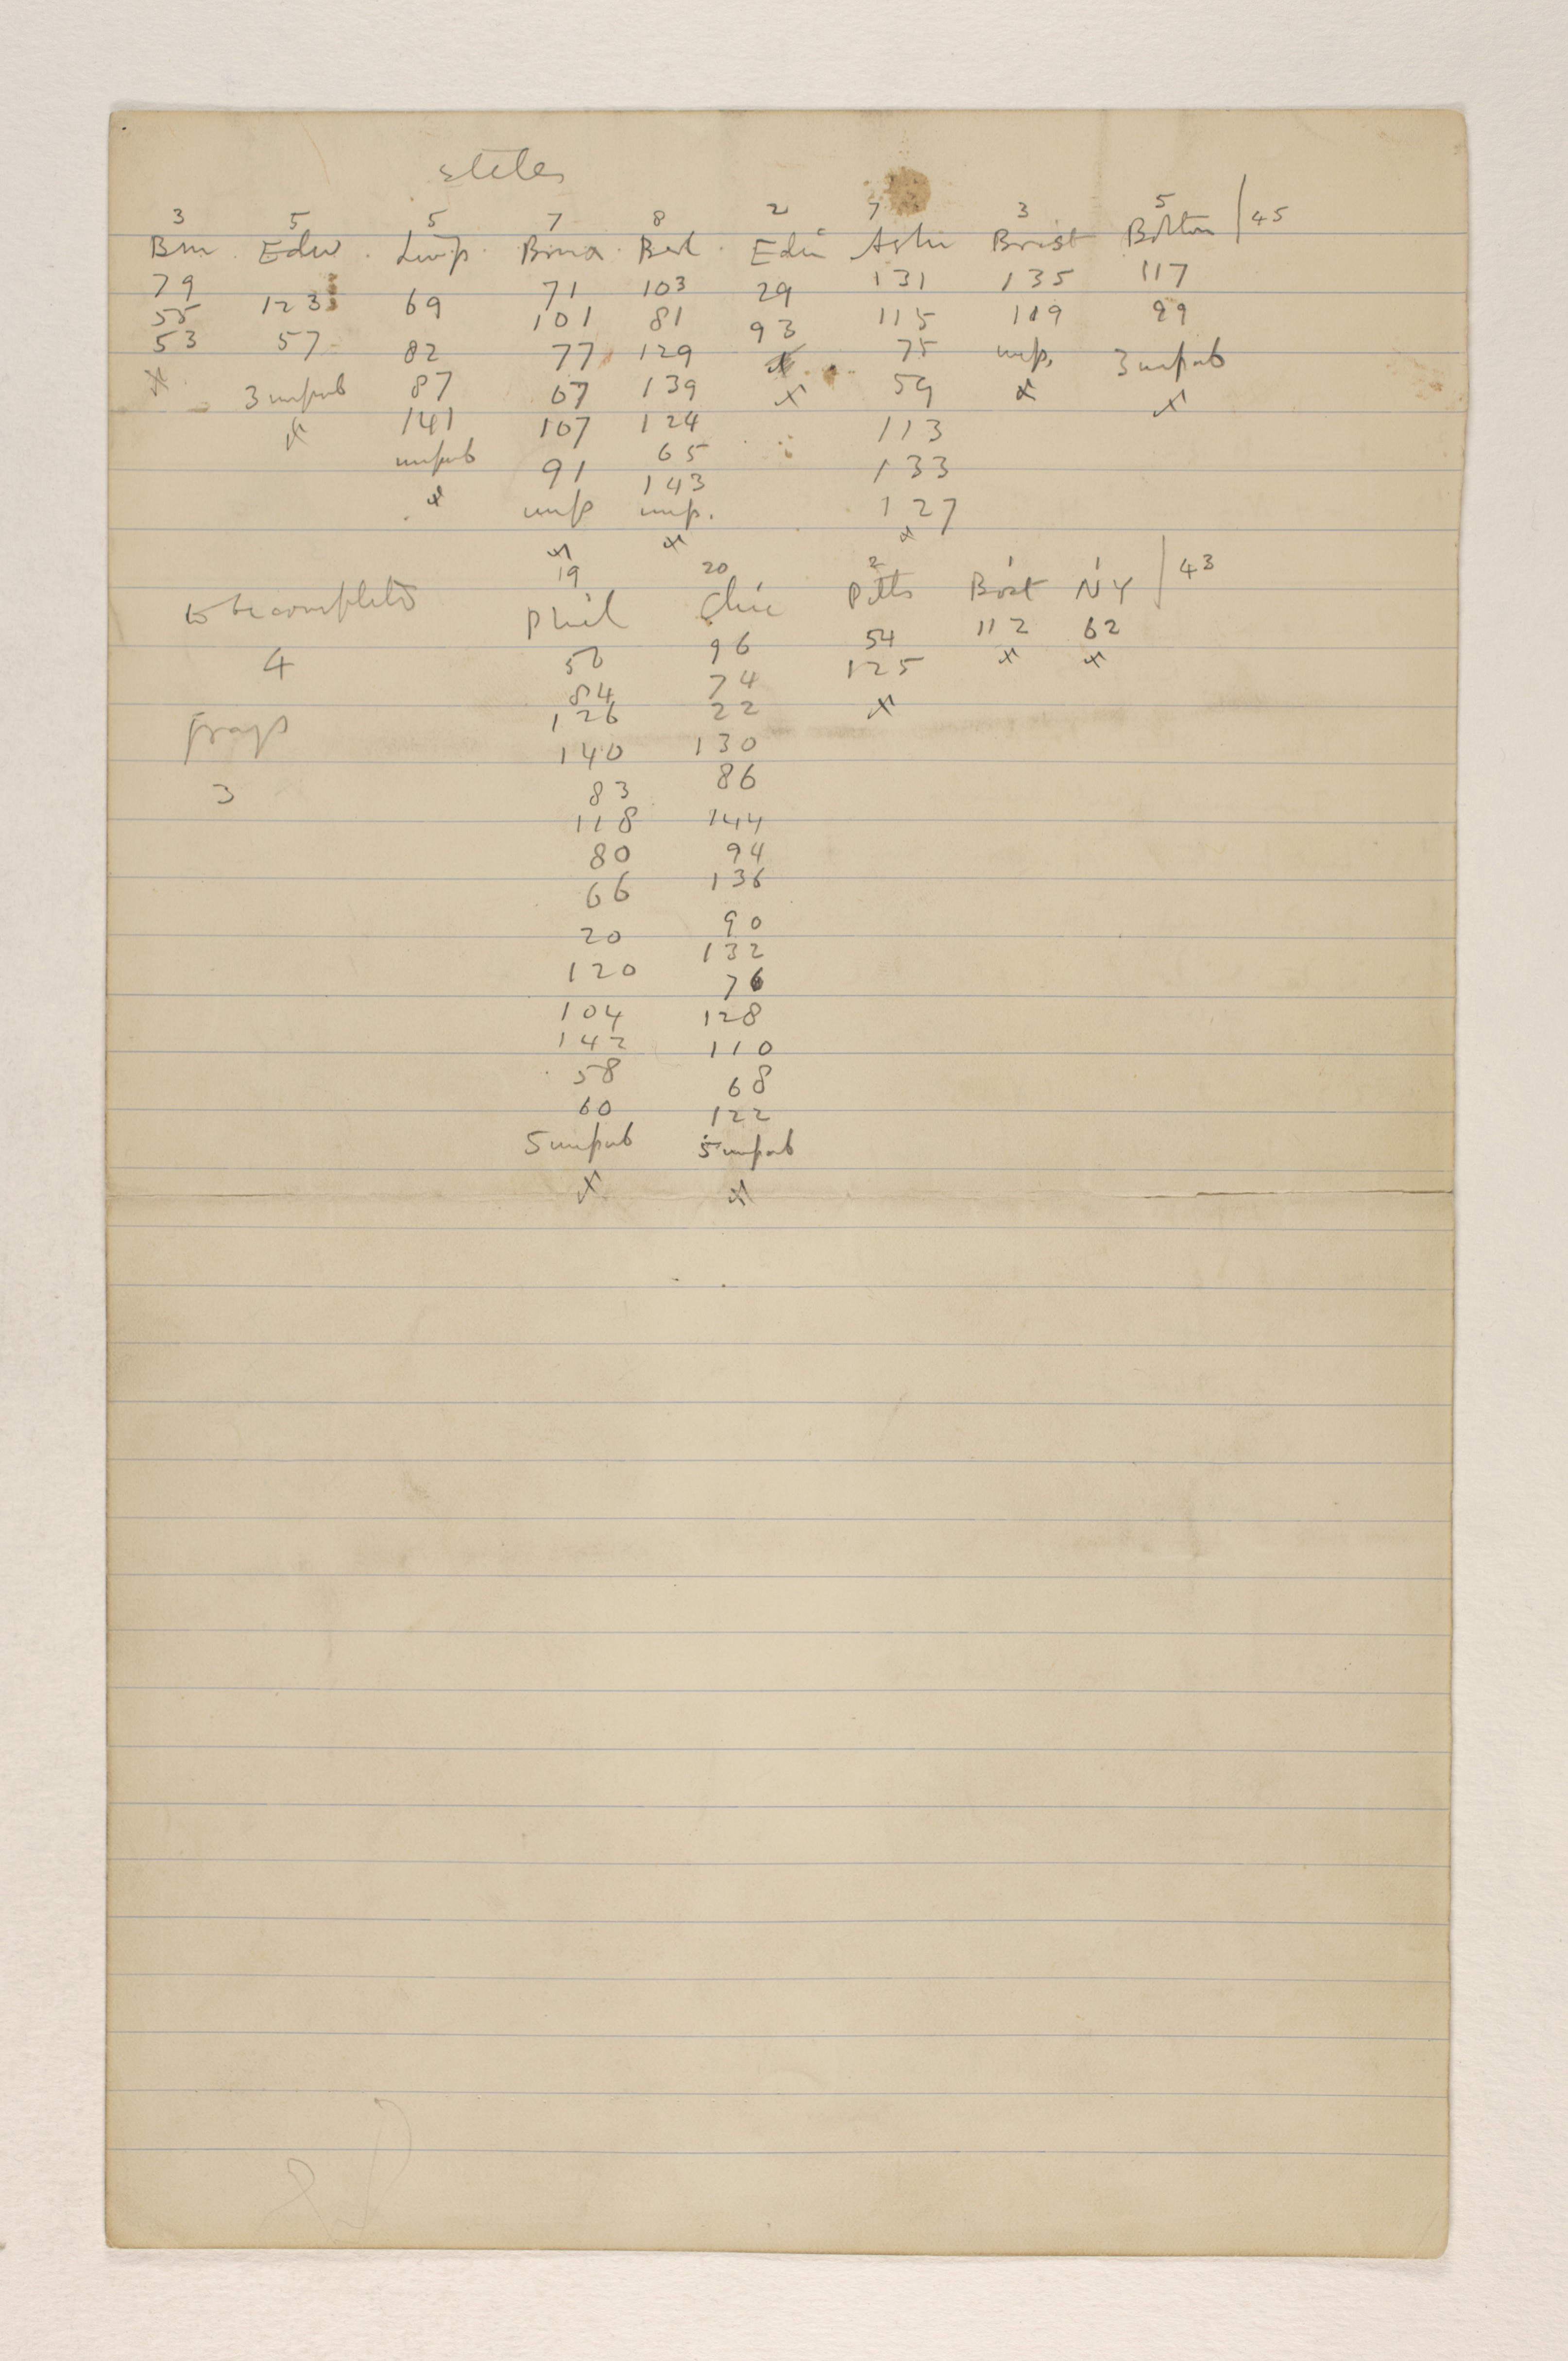 steles
3 5 5 7 8 2 7 3 5 /45
Bm . Edw . Liverp . Birma . Berl . Edin Ashm Brist Bolton
79 123 69 71 103 29 131 135 117
55 57 82 101 81 93 115 119 99
53 3 unpub 87 77 129 x 75 unp. 3 unpub
x x 141 67 139 x 59 x x
unpub 107 124 113
x 91 65 133
unp 143 127
x unp. x
x
19 20 2 1 1 /43
to be completed Phil Chic Pitts Bost NY
4 56 96 54 112 62
84 74 125 x x
frags 126 22 x
140 130
3 83 86
118 144
80 94
66 136
20 90
120 132
104 76
142 128
58 110
60 68
5 unpub 122
x 5 unpub
x